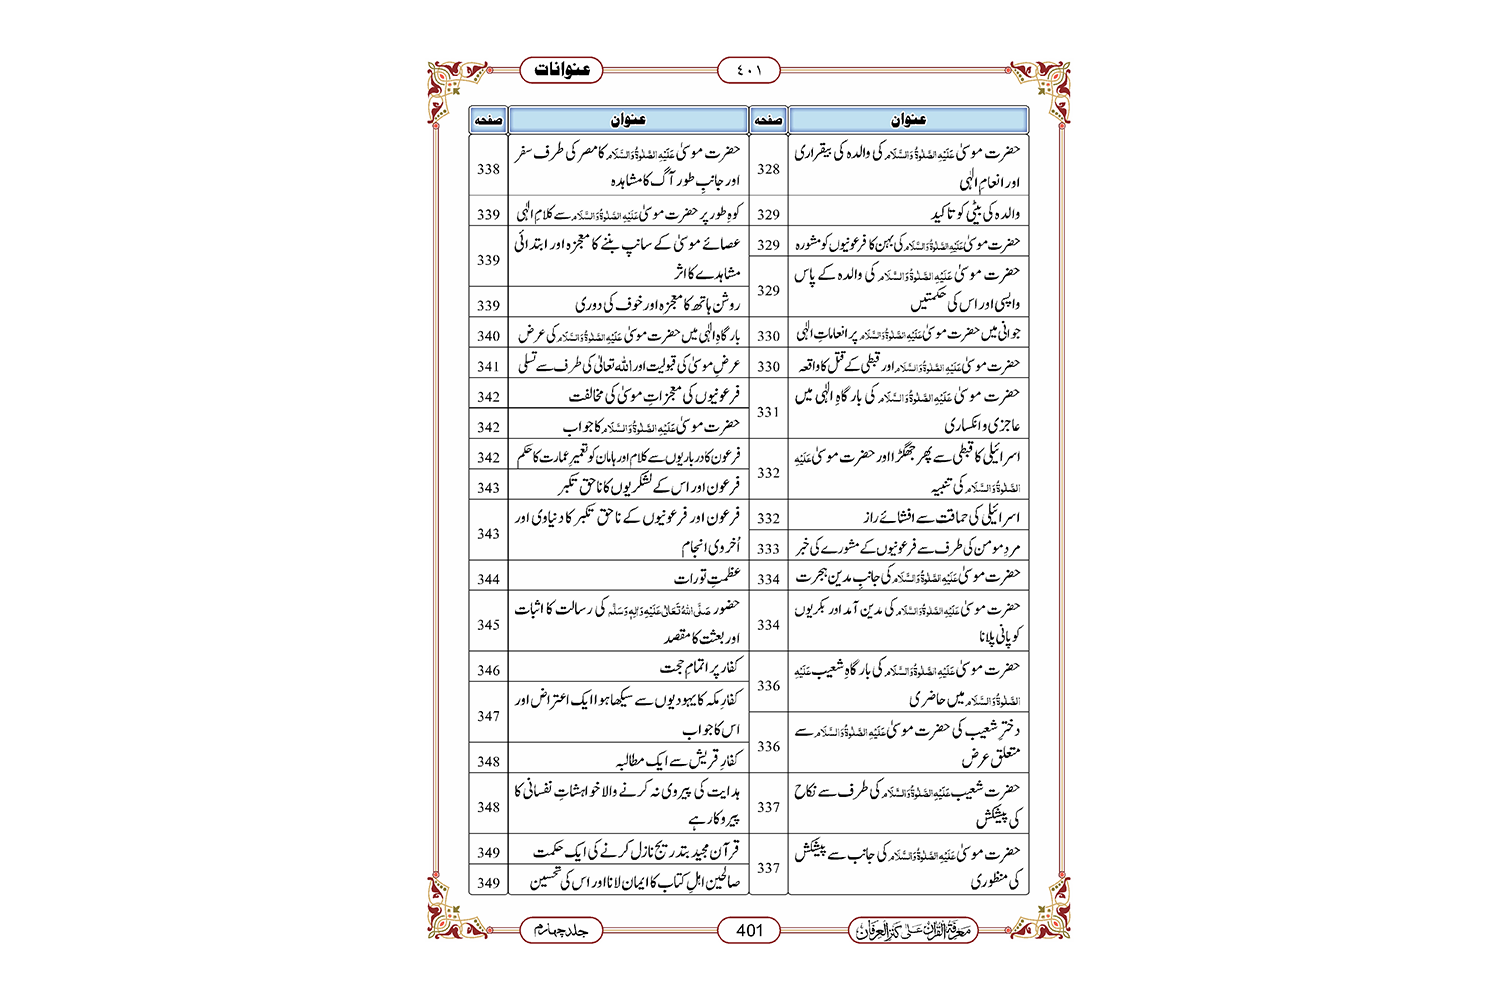 عنوانات
٤٠١
عنوان
صفحہ
حضرت موسیٰ عَلَیْہِ الصَّلٰوۃُ وَالسَّلَام کی والدہ کی بیقراری
اور انعامِ الٰہی
328
والدہ کی بیٹی کو تاکید
329
حضرت موسیٰ عَلَیْہِ الصَّلٰوۃُ وَالسَّلَام کی بہن کا فرعونیوں کو مشورہ
329
حضرت موسیٰ عَلَیْہِ الصَّلٰوۃُ وَالسَّلَام کی والدہ کے پاس
واپسی اور اس کی حکمتیں
329
جوانی میں حضرت موسیٰ عَلَیْہِ الصَّلٰوۃُ وَالسَّلَام پر انعاماتِ الٰہی
330
حضرت موسیٰ عَلَیْہِ الصَّلٰوۃُ وَالسَّلَام اور قبطی کے قتل کا واقعہ
330
حضرت موسیٰ عَلَیْہِ الصَّلٰوۃُ وَالسَّلَام کی بارگاہِ الٰہی میں
عاجزی و انکساری
331
اسرائیلی کا قبطی سے پھر جھگڑا اور حضرت موسیٰ عَلَیْہِ
الصَّلٰوۃُ وَالسَّلَام کی تنبیہ
332
اسرائیلی کی حماقت سے افشائے راز
332
مردِ مومن کی طرف سے فرعونیوں کے مشورے کی خبر
333
حضرت موسیٰ عَلَیْہِ الصَّلٰوۃُ وَالسَّلَام کی جانبِ مدین ہجرت
334
حضرت موسیٰ عَلَیْہِ الصَّلٰوۃُ وَالسَّلَام کی مدین آمد اور بکریوں
کو پانی پلانا
334
حضرت موسیٰ عَلَیْہِ الصَّلٰوۃُ وَالسَّلَام کی بارگاہِ شعیب عَلَیْہِ
الصَّلٰوۃُ وَالسَّلَام میں حاضری
336
دخترِ شعیب کی حضرت موسیٰ عَلَیْہِ الصَّلٰوۃُ وَالسَّلَام سے
متعلق عرض
336
حضرت شعیب عَلَیْہِ الصَّلٰوۃُ وَالسَّلَام کی طرف سے نکاح
کی پیشکش
337
حضرت موسیٰ عَلَیْہِ الصَّلٰوۃُ وَالسَّلَام کی جانب سے پیشکش
کی منظوری
337
عنوان
صفحہ
حضرت موسیٰ عَلَیْہِ الصَّلٰوۃُ وَالسَّلَام کا مصر کی طرف سفر
اور جانبِ طور آگ کا مشاہدہ
338
کوہِ طور پر حضرت موسیٰ عَلَیْہِ الصَّلٰوۃُ وَالسَّلَام سے کلامِ الٰہی
339
عصائے موسیٰ کے سانپ بننے کا معجزہ اور ابتدائی
مشاہدے کا اثر
339
روشن ہاتھ کا معجزہ اور خوف کی دوری
339
بارگاہِ الٰہی میں حضرت موسیٰ عَلَیْہِ الصَّلٰوۃُ وَالسَّلَام کی عرض
340
عرضِ موسیٰ کی قبولیت اور اللہ تعالیٰ کی طرف سے تسلی
341
فرعونیوں کی معجزاتِ موسیٰ کی مخالفت
342
حضرت موسیٰ عَلَیْہِ الصَّلٰوۃُ وَالسَّلَام کا جواب
342
فرعون کا درباریوں سے کلام اور ہامان کو تعمیرِ عمارت کا حکم
342
فرعون اور اس کے لشکریوں کا ناحق تکبر
343
فرعون اور فرعونیوں کے ناحق تکبر کا دنیاوی اور
اُخروی انجام
343
عظمتِ تورات
344
حضور صَلَّی اللہُ تَعَالٰی عَلَیْہِ وَاٰلِہٖ وَسَلَّم کی رسالت کا اثبات
اور بعثت کا مقصد
345
کفار پر اتمامِ حجت
346
کفارِ مکہ کا یہودیوں سے سیکھا ہوا ایک اعتراض اور
اس کا جواب
347
کفارِ قریش سے ایک مطالبہ
348
ہدایت کی پیروی نہ کرنے والا خواہشاتِ نفسانی کا
پیروکار ہے
348
قرآن مجید بتدریج نازل کرنے کی ایک حکمت
349
صالحین اہلِ کتاب کا ایمان لانا اور اس کی تحسین
349
مَعْرِفَۃُ الْقُرْاٰن عَلٰی کَنْزِ الْعِرْفَان
401
جلد چہارم